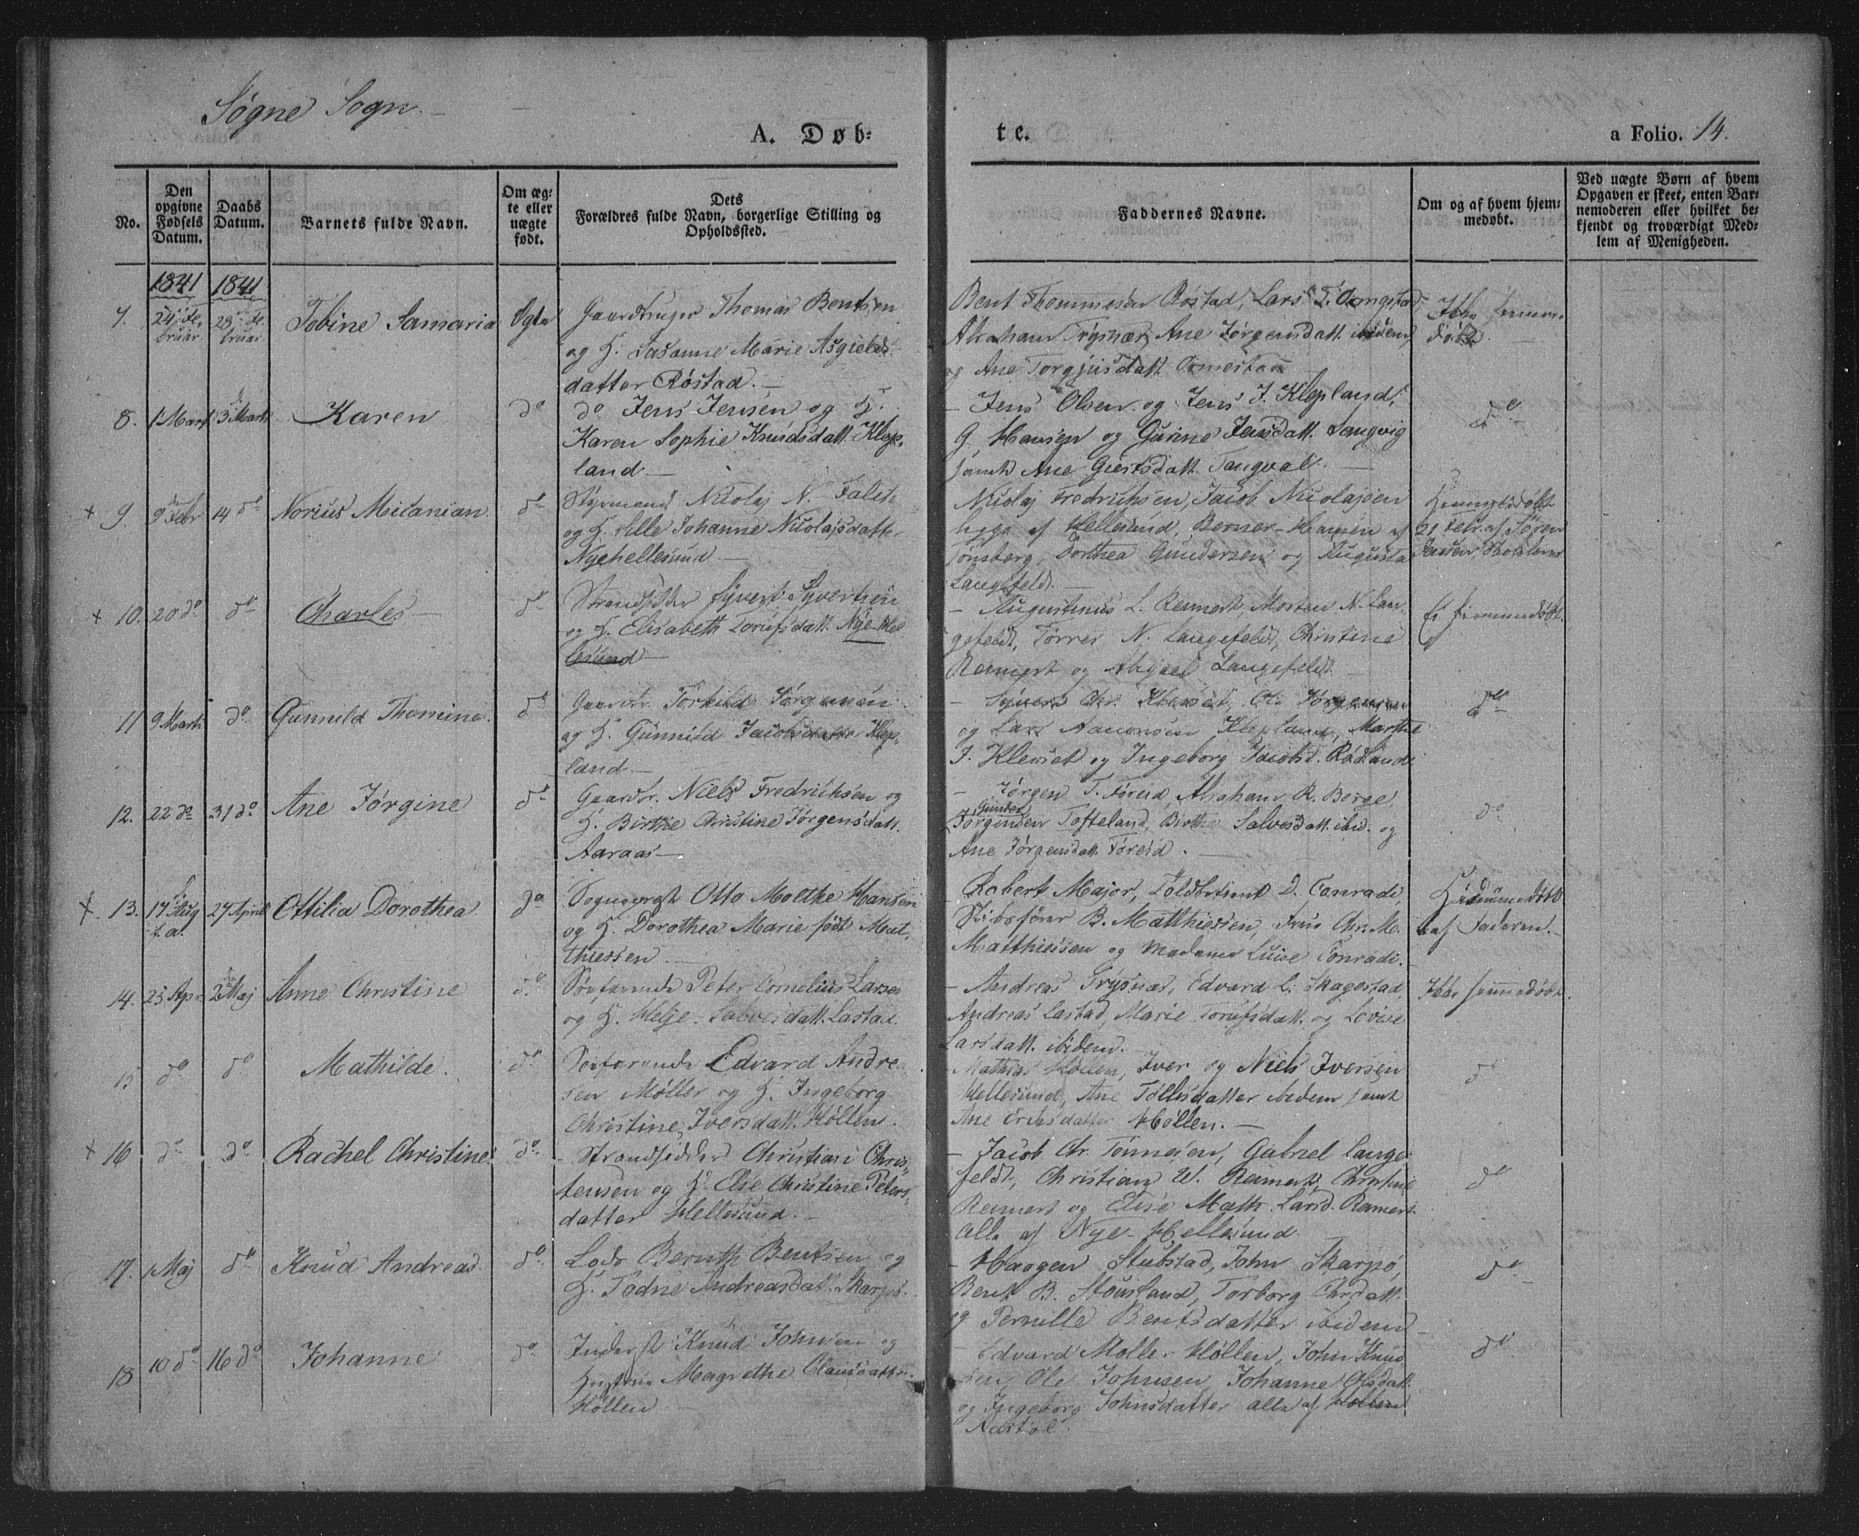 Søgne Sogn.
A. Døb-
te.
a Folio. 14.
No.
Den opgivne Fødsels Datum.
Daabs Datum.
Barnets fulde Navn.
Om ægte eller uægte født.
Dets
Forældres fulde Navn, borgerlige Stilling og
Opholdssted.
Faddernes Navne.
Om og af hvem hjem-
medøbt.
Ved uægte Børn af hvem
Opgaven er skeet, enten Bar-
nemoderen eller hvilket be-
kjendt og troværdigt Med-
lem af Menigheden.
1841 1841
7. Tobine Samaria Ægte
Gaardbruger Thomas Bentsen
og H. Susanne Marie Asgields-
datter Røstad.
Bent Thommesen Røstad, Lars T.
Abraham Trysnæs, Ane Jørgensdatt. ibidem,
og Ane Torgjusdatt.
8. 1 Marts Karen do
do Jens Jensen og H.
Karen Sophie Knudsdatt. Klep-
land
Jens Olsen og Jens J. Klepland,
G. Hansen og Gurine Jensdatt. Langvig
samt Ane Giertsdatt. Tangval.
do
+ 9. 9 Febr 14 do Norius Micanian do
Styrmand Nicolaj N. Falck
og H. Elle Johanne Nicolajsdatter
Nyehellesund
Nicolaj Fredrichsen, Jacob Nicolajsen
begge af Hellesund, Berner Hansen af
Tønsberg, Dorthea Gundersen og Augusta
Langefeldt
Hjemmedøbt
21 Febr. af Søren
Jansen Skolelærer
+ 10. 20 do do Charles do
Strandsidder Syvert Syvertsen
og H. Elisabeth Torufsdatt. Nye Hel-
lesund
Augustinus L. Reimert, Morten N. Lan-
gefeldt, Torres N. Langefeldt, Christine
Reimert og Abigael Langefeldt
Ei hjemmedøbt
11 9 Marts do Gunnild Thomine do
Gaardbr. Torkild Jørgensen
og H. Gunnild Jacobsdatter Klep-
land
Syvert Chr. Kleveset, Ole Jørgensen
og Lars Aanonsen Klepland, Marthe
J. Kleveset og Ingeborg Jacobsd. Rødland
do
12. 22 do 31 do Ane Jørgine do
Gaardbr. Niels Fredrichsen og
H. Birthe Christine Jørgensdatt.
Aaraas
Jørgen T. Føreid, Abraham R. Berge,
Gunder
Jørgensen Tofteland, Birthe Salvesdatt. ibid. og
Ane Jørgensdatt. Føreid.
do
+ 13. 17 27 April Ottilia Dorothea do
Sogneprest Otto Moltke Hansen
og H. Dorothea Marie født Mat-
thiessen
Robert Major, Toldbetient D. Conradi,
Skibsfører B. Matthiessen, Frue Chr. M.
Matthiessen og Madame Luise Conradi.
Hjemmedøbt
af Faderen.
14. 25 Apr 2 Maj Anne Christine do
Søefarende Peter Cornelius Larsen
og H. Helje Salvesdatt. Lastad
Andreas Trysnæs, Edvard L. Skagestad,
Andreas Lastad, Marie Torufsdatt. og Lovise
Larsdatt. ibidem.
Ikke hjemmedøbt.
15 do do Mathilde. do
Søefarende Edvard Andrea-
sen Møller og H. Ingeborg
Christine Iversdatt. Høllen.
Mathias Høllen, Iver og Niels Iversen
Hellesund, Ane Tollisdatter ibidem samt
Ane Erichsdatter Høllen.
do
+ 16 do do Rachel Christine do
Strandsidder Christian Chris-
tensen og H. Else Christine Peters-
datter Hellesund.
Jacob Chr. Tønnesen, Gabriel Lange-
feldt, Christian W. Reimert, Christine
Reimert og Elise Math. Larsd. Reimert
alle af Nye-Hellesund
do
17. 1 Maj do Knud Andreas do
Lods Beruth Bentsen og
H. Todne Andreasdatt. Skarpø.
Haagen Stubstad, John Skarpø,
Bent B. Stousland, Torborg Chrdatt.
og Pernille Bentsdatter ibidem
do
18 10 do 16 do Johanne do
Inderst Knud Johnsen og
Hustrue Magrethe Clausdatter
Høllen
Edvard Møller Høllen, John Knud-
sen, Ole Johnsen, Johanne Olsdatt.
og Ingeborg Johnsdatter alle af Høllen
do